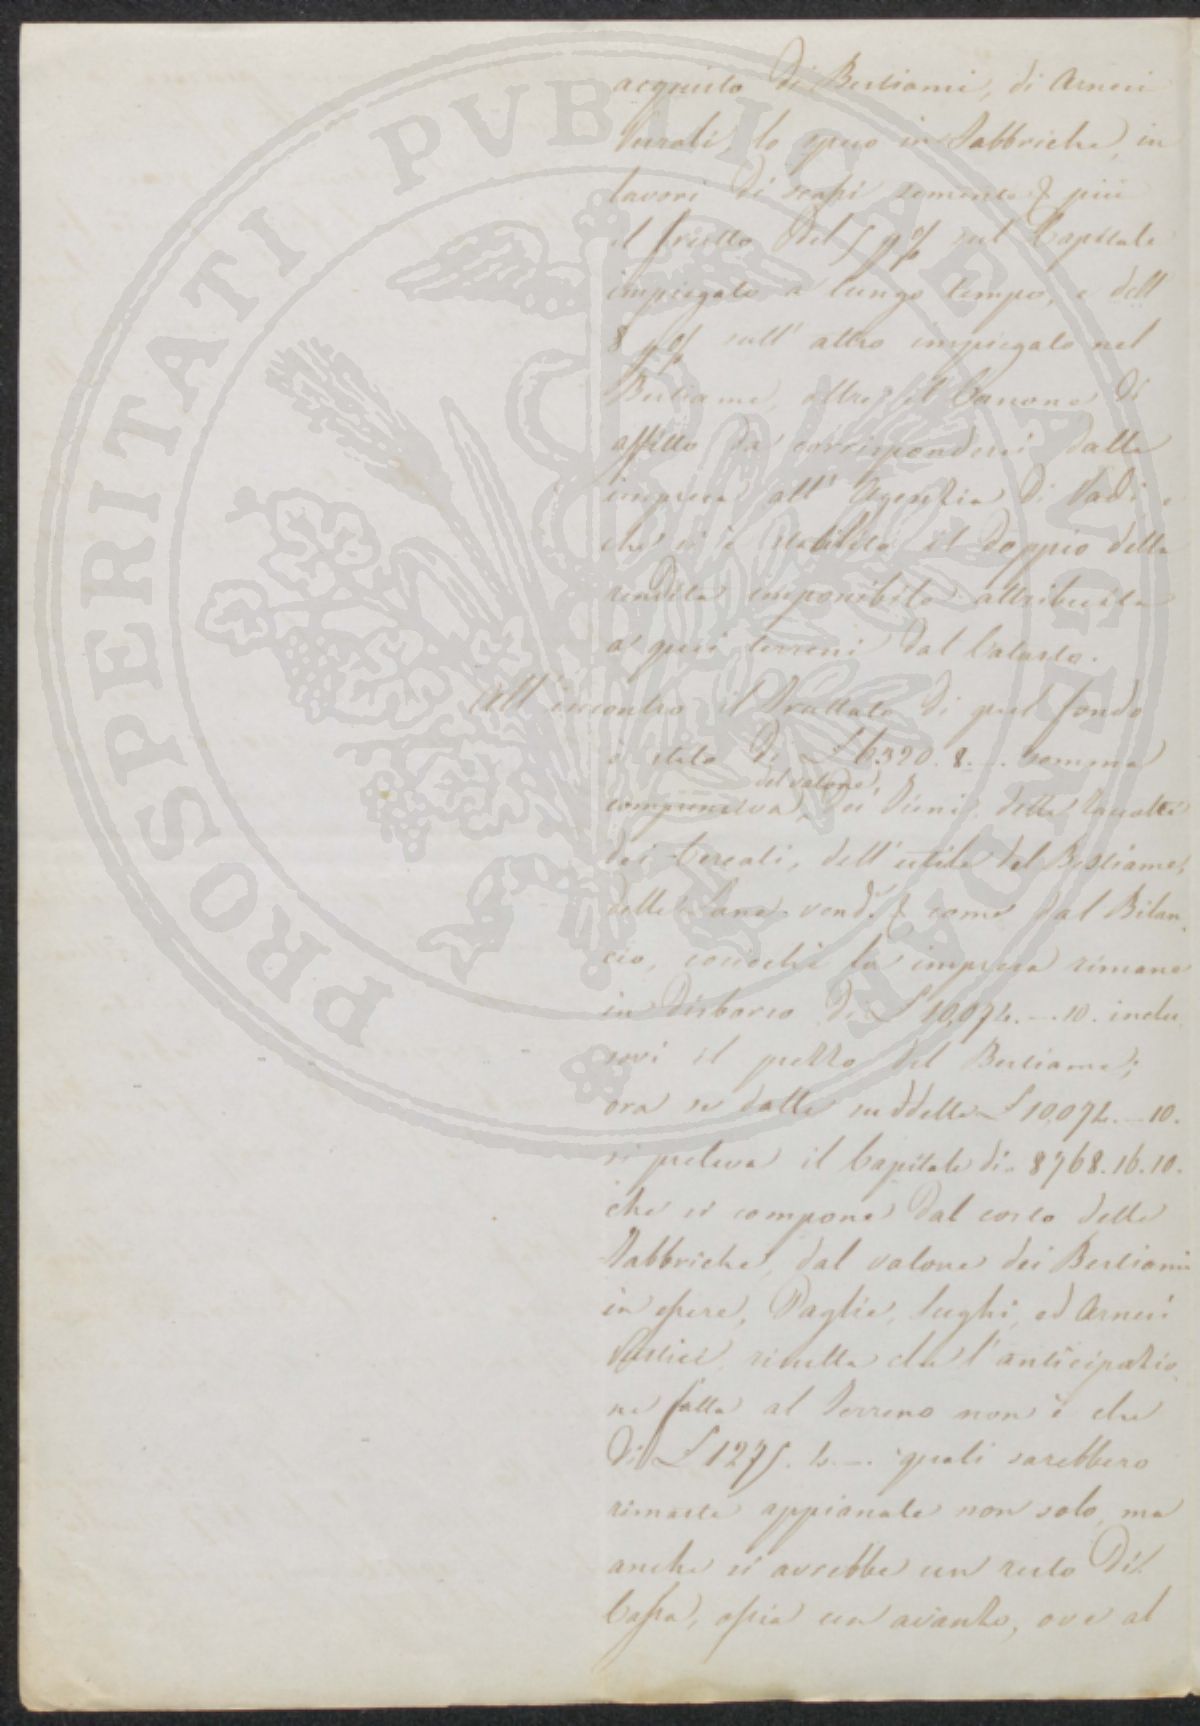 acquisto di Bestiami, di Arnesi
Rurali, le spese in Fabbriche, in
lavori di scassi sementi & più
il frutto del 5 p% sul Capitale
impiegato a lungo tempo, e dell'
8 p% sull' altro impiegato nel
Bestiame, oltre il Canone di
affitto da corrispondersi dalla
impresa all' Agenzia di Vadi e
che si è stabilito il doppio della
rendita imponibile attribuita
a quei terreni dal Catasto.
All' incontro il Fruttato di quel fondo
è stato di £ 6390. 8. — somma
del valore
compensiva, dei Fieni, delle raccolte
dei Cereali, dell' utile del Bestiame,
delle Lane vend.e & come dal Bilan
cio, cosicchè la impresa rimane
in disborso di £ 10,074. — 10. inclu
sovi il prezzo del Bestiame;
ora se dalle suddette £ 10,074. — 10.
si preleva il Capitale di £ 8768. 16. 10.
che si compone dal costo delle
Fabbriche, dal valore dei Bestiami
in essere, Paglie, Sughi, ed Arnesi
Rustici, risulta che l' anticipazio
ne fatta al Terreno non è che
di £ 1275. 4. — quali sarebbero
rimaste appianate non solo, ma
anche si avrebbe un resto di
Cassa, ossia un avanzo, ove al
PROSPERITATI PVBLICAE AVGENDAE